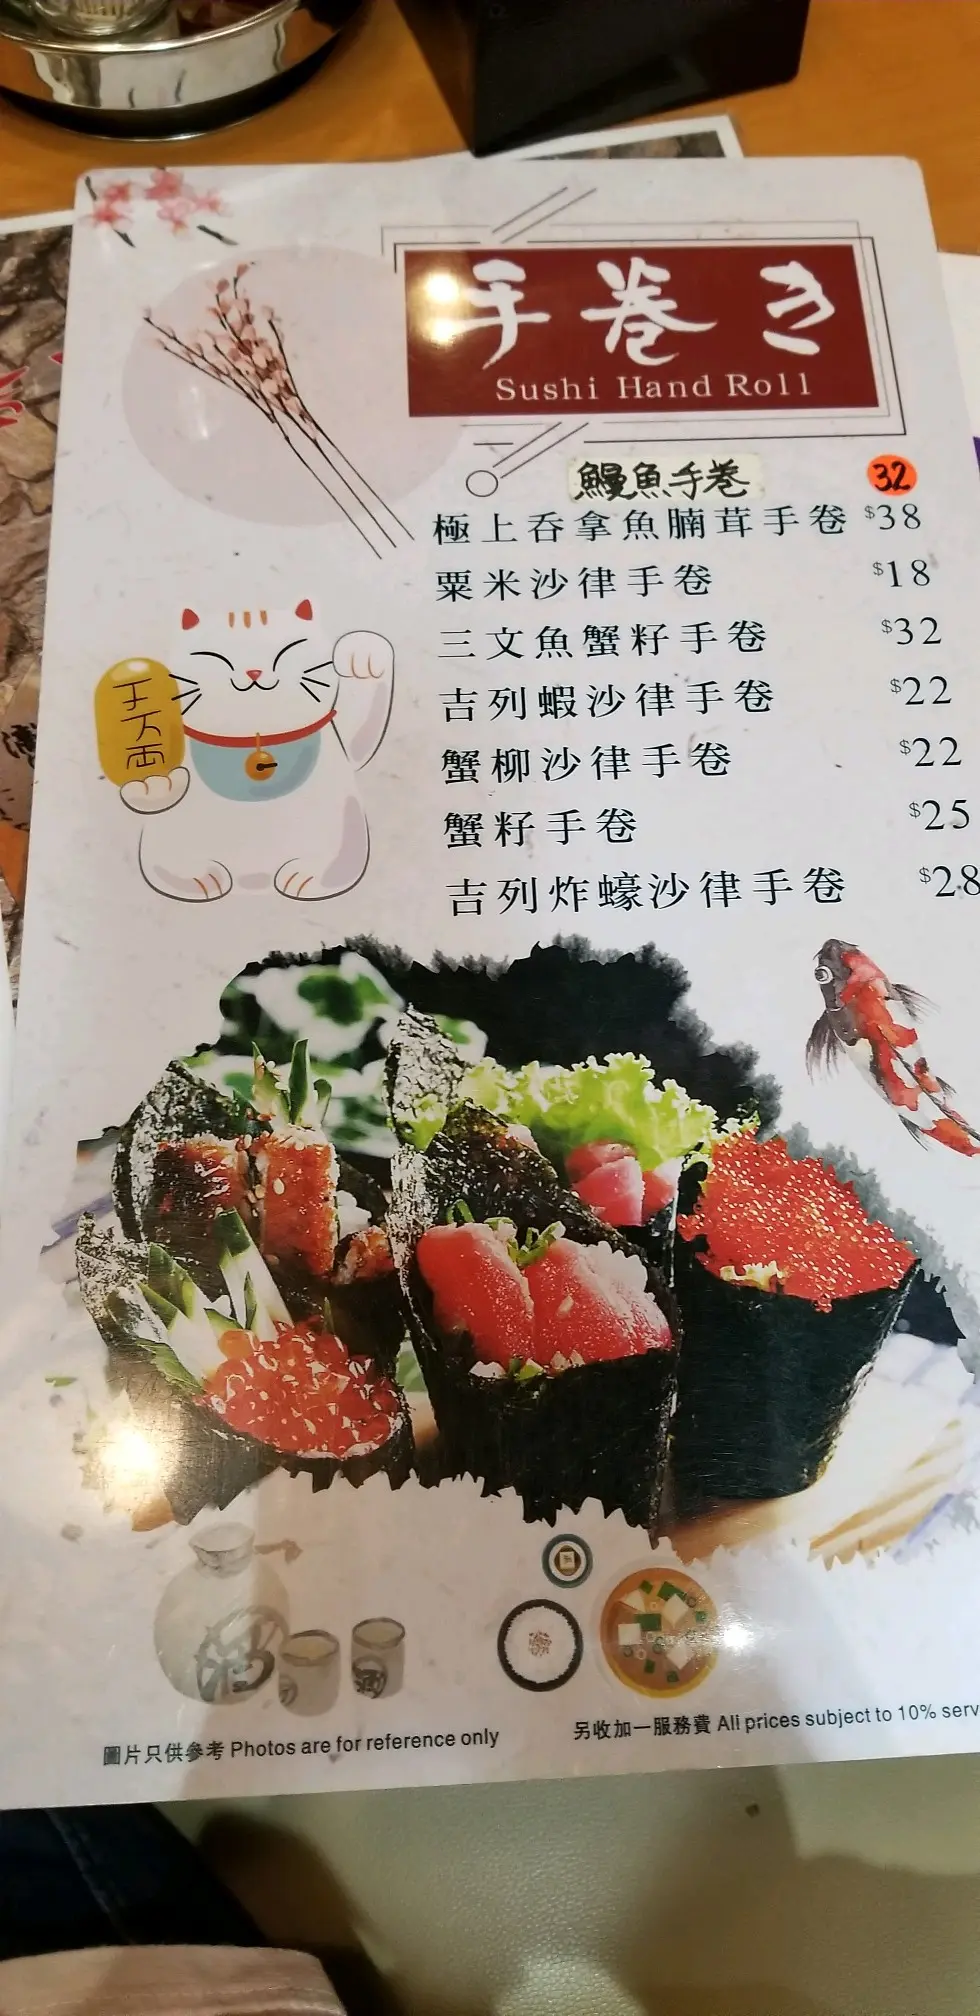 手巻き
Sushi Hand Roll
鰻魚手巻 32
極上吞拿魚腩茸手卷 $38
粟米沙律手卷 $18
三文魚蟹籽手卷 $32
吉列蝦沙律手卷 $22
蟹柳沙律手卷 $22
蟹籽手卷 $25
吉列炸蠔沙律手卷 $28
酒
圖片只供參考 Photos are for reference only
另收加一服務費 All prices subject to 10% serv